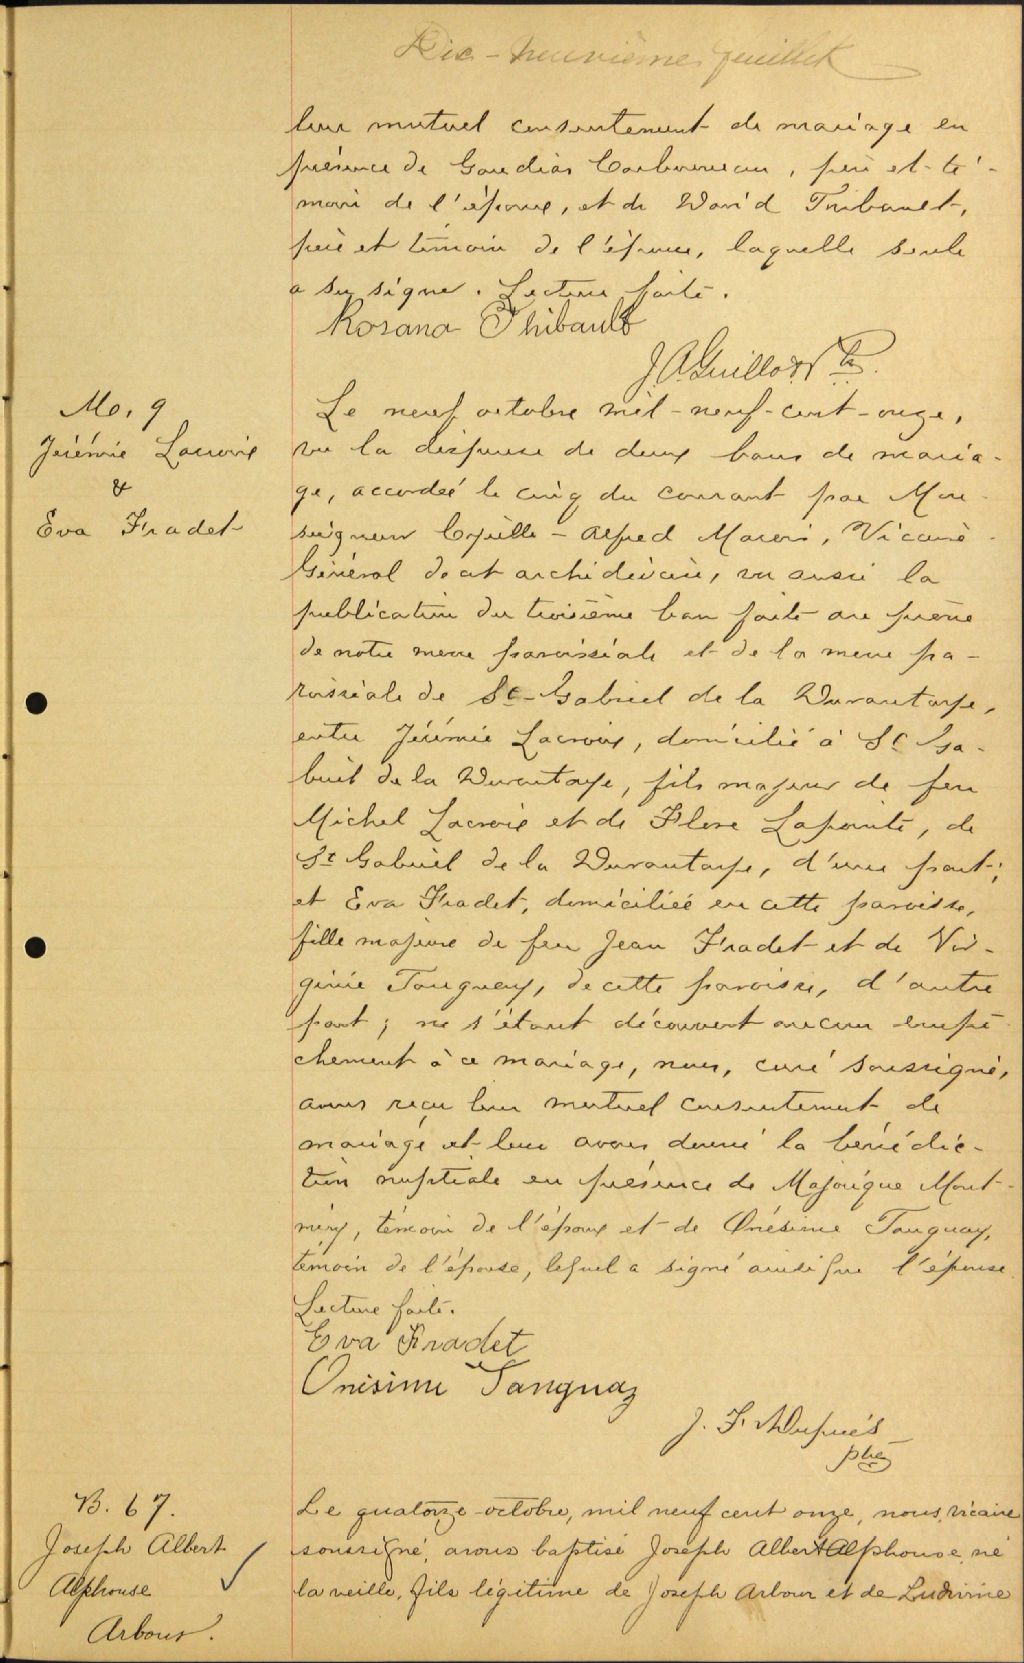 Dix-neuvième feuillet
leur mutuel consentement de mariage en
présence de Gaudias Carbonneau, père et té-
moin de l'époux, et de David Thibault,
père et témoin de l'épouse, laquelle seule
a su signer. Lecture faite.
Rosana Thibault
J. A. Guillot Ptr.
M. 9
Jérémie Lacroix
&
Eva Fradet
Le neuf octobre mil-neuf-cent-onze,
vu la dispense de deux bans de maria-
ge, accordée le cinq du courant par Mon-
seigneur Cyrille-Alfred Marois, Vicaire-
Général de cet archidiocèse, vu aussi la
publication du troisième ban faite au prône
de notre messe paroissiale et de la messe pa-
roissiale de St-Gabriel de la Durantaye,
entre Jérémie Lacroix, domicilié à St Ga-
briel de la Durantaye, fils majeur de feu
Michel Lacroix et de Flore Lapointe, de
St Gabriel de la Durantaye, d'une part;
et Eva Fradet, domiciliée en cette paroisse,
fille majeure de feu Jean Fradet et de Vir-
ginie Tanguay, de cette paroisse, d'autre
part; ne s'étant découvert aucun empê-
chement à ce mariage, nous, curé soussigné,
avons reçu leur mutuel consentement de
mariage et leur avons donné la bénédic-
tion nuptiale en présence de Majorique Mont-
miny, témoin de l'époux et de Onésime Tanguay,
témoin de l'épouse, lequel a signé ainsi que l'épouse.
Lecture faite.
Eva Fradet
Onisime Tanguay
J. F. Dupuis
ptre
B. 67.
Joseph Albert
Alphonse
Arbour.
Le quatorze octobre, mil neuf cent onze, nous, vicaire
soussigné, avons baptisé Joseph Albert Alphonse, né
la veille, fils légitime de Joseph Arbour et de Ludivine